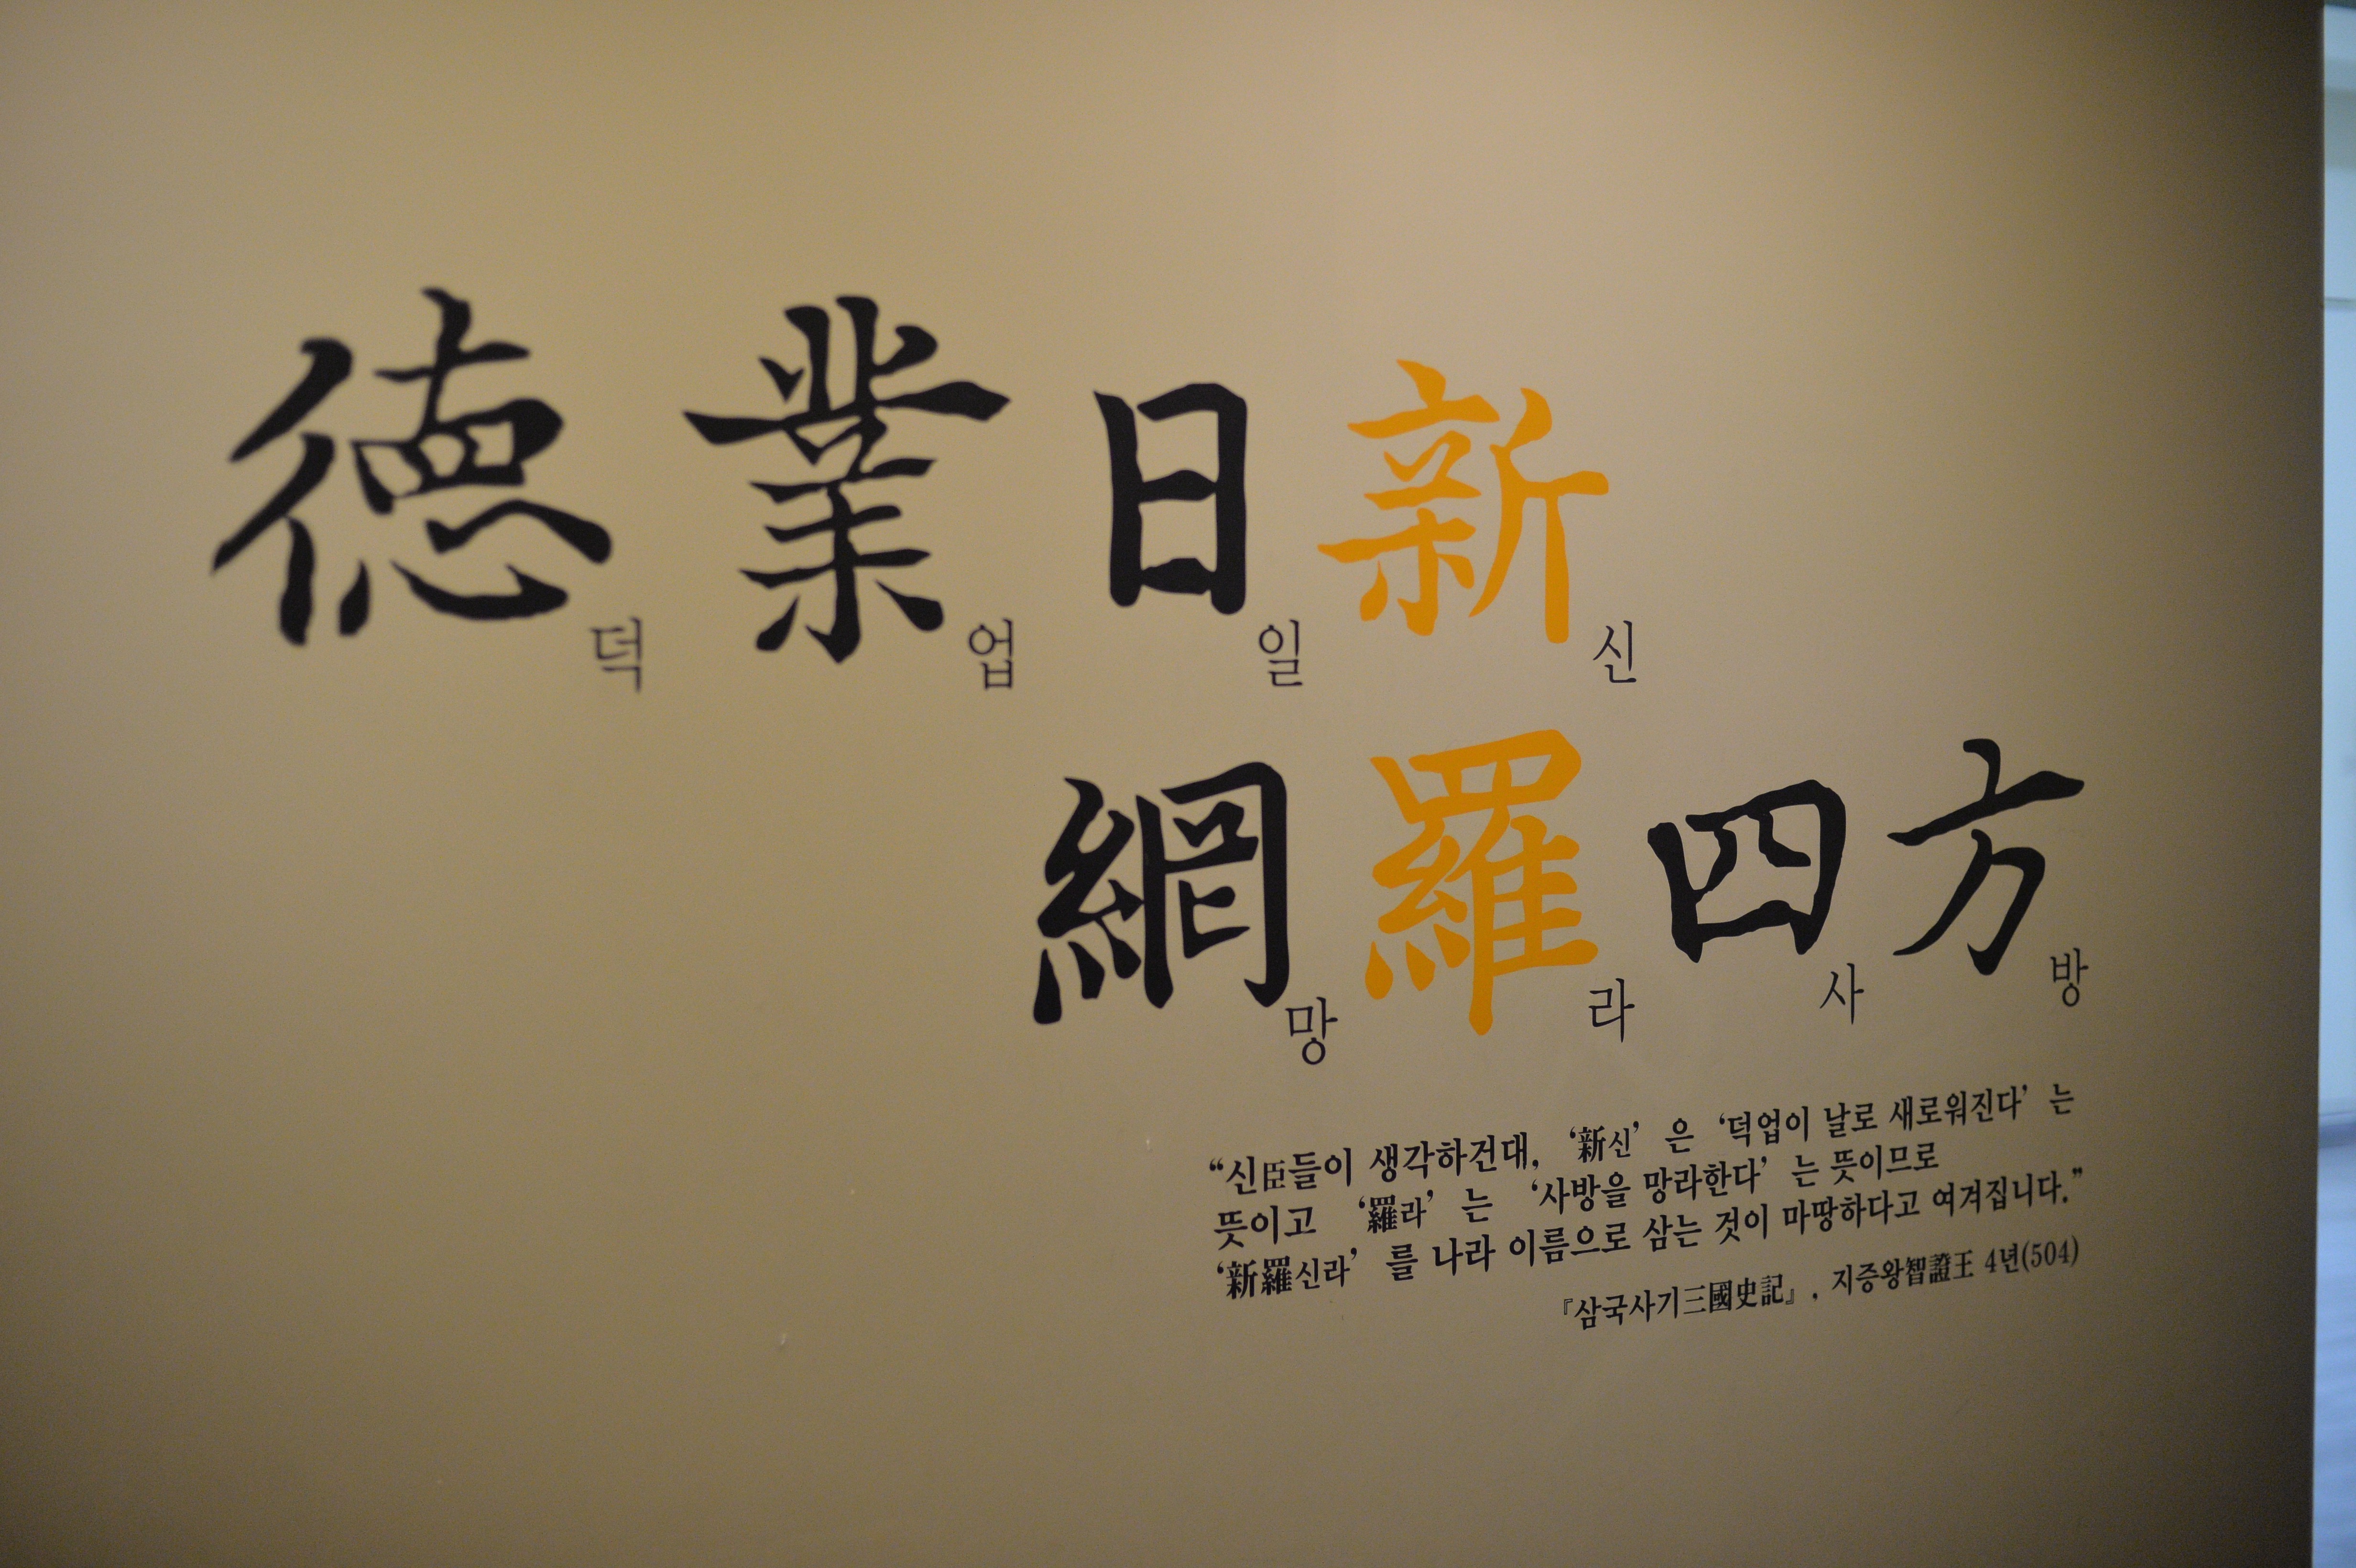 德業日新
덕 업 일 신
網羅四方
망 라 사 방
“신臣들이 생각하건대, ‘新신’ 은 ‘덕업이 날로 새로워진다’ 는
뜻이고 ‘羅라’ 는 ‘사방을 망라한다’ 는 뜻이므로
‘新羅신라’ 를 나라 이름으로 삼는 것이 마땅하다고 여겨집니다.”
『삼국사기三國史記』, 지증왕智證王 4년(504)